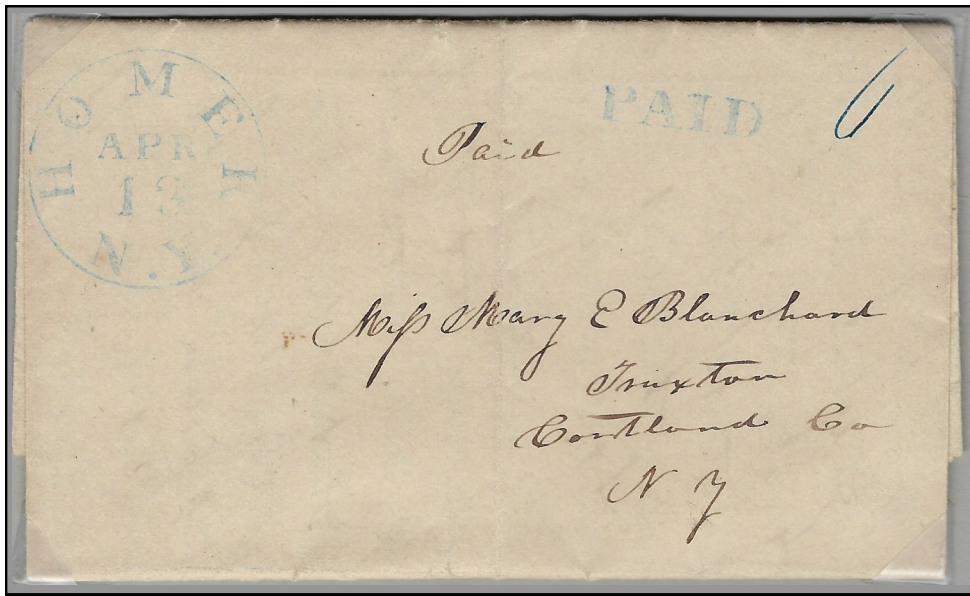 HOMER
APR
13
N.Y.
PAID
6
Paid
Miss Mary E Blanchard
Truxton
Cortland Co
N Y